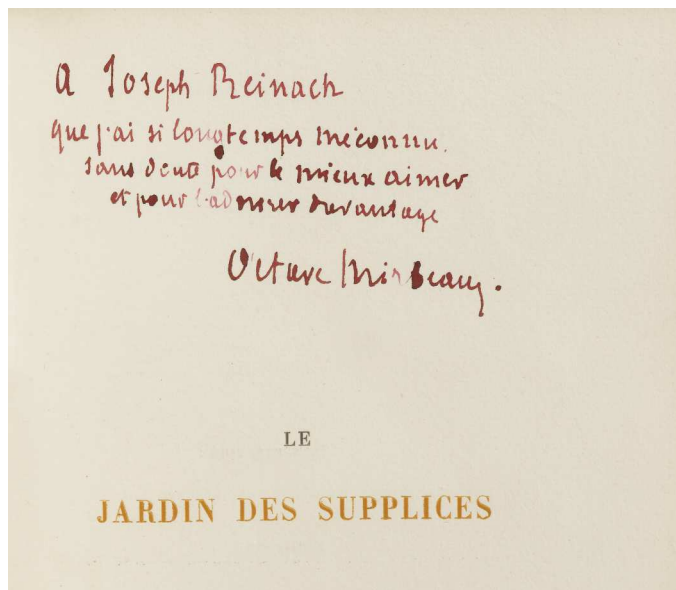 A Joseph Reinach
que j'ai si longtemps méconnu.
sans doute pour le mieux aimer
et pour l'admirer davantage
Octave Mirbeau.
LE
JARDIN DES SUPPLICES